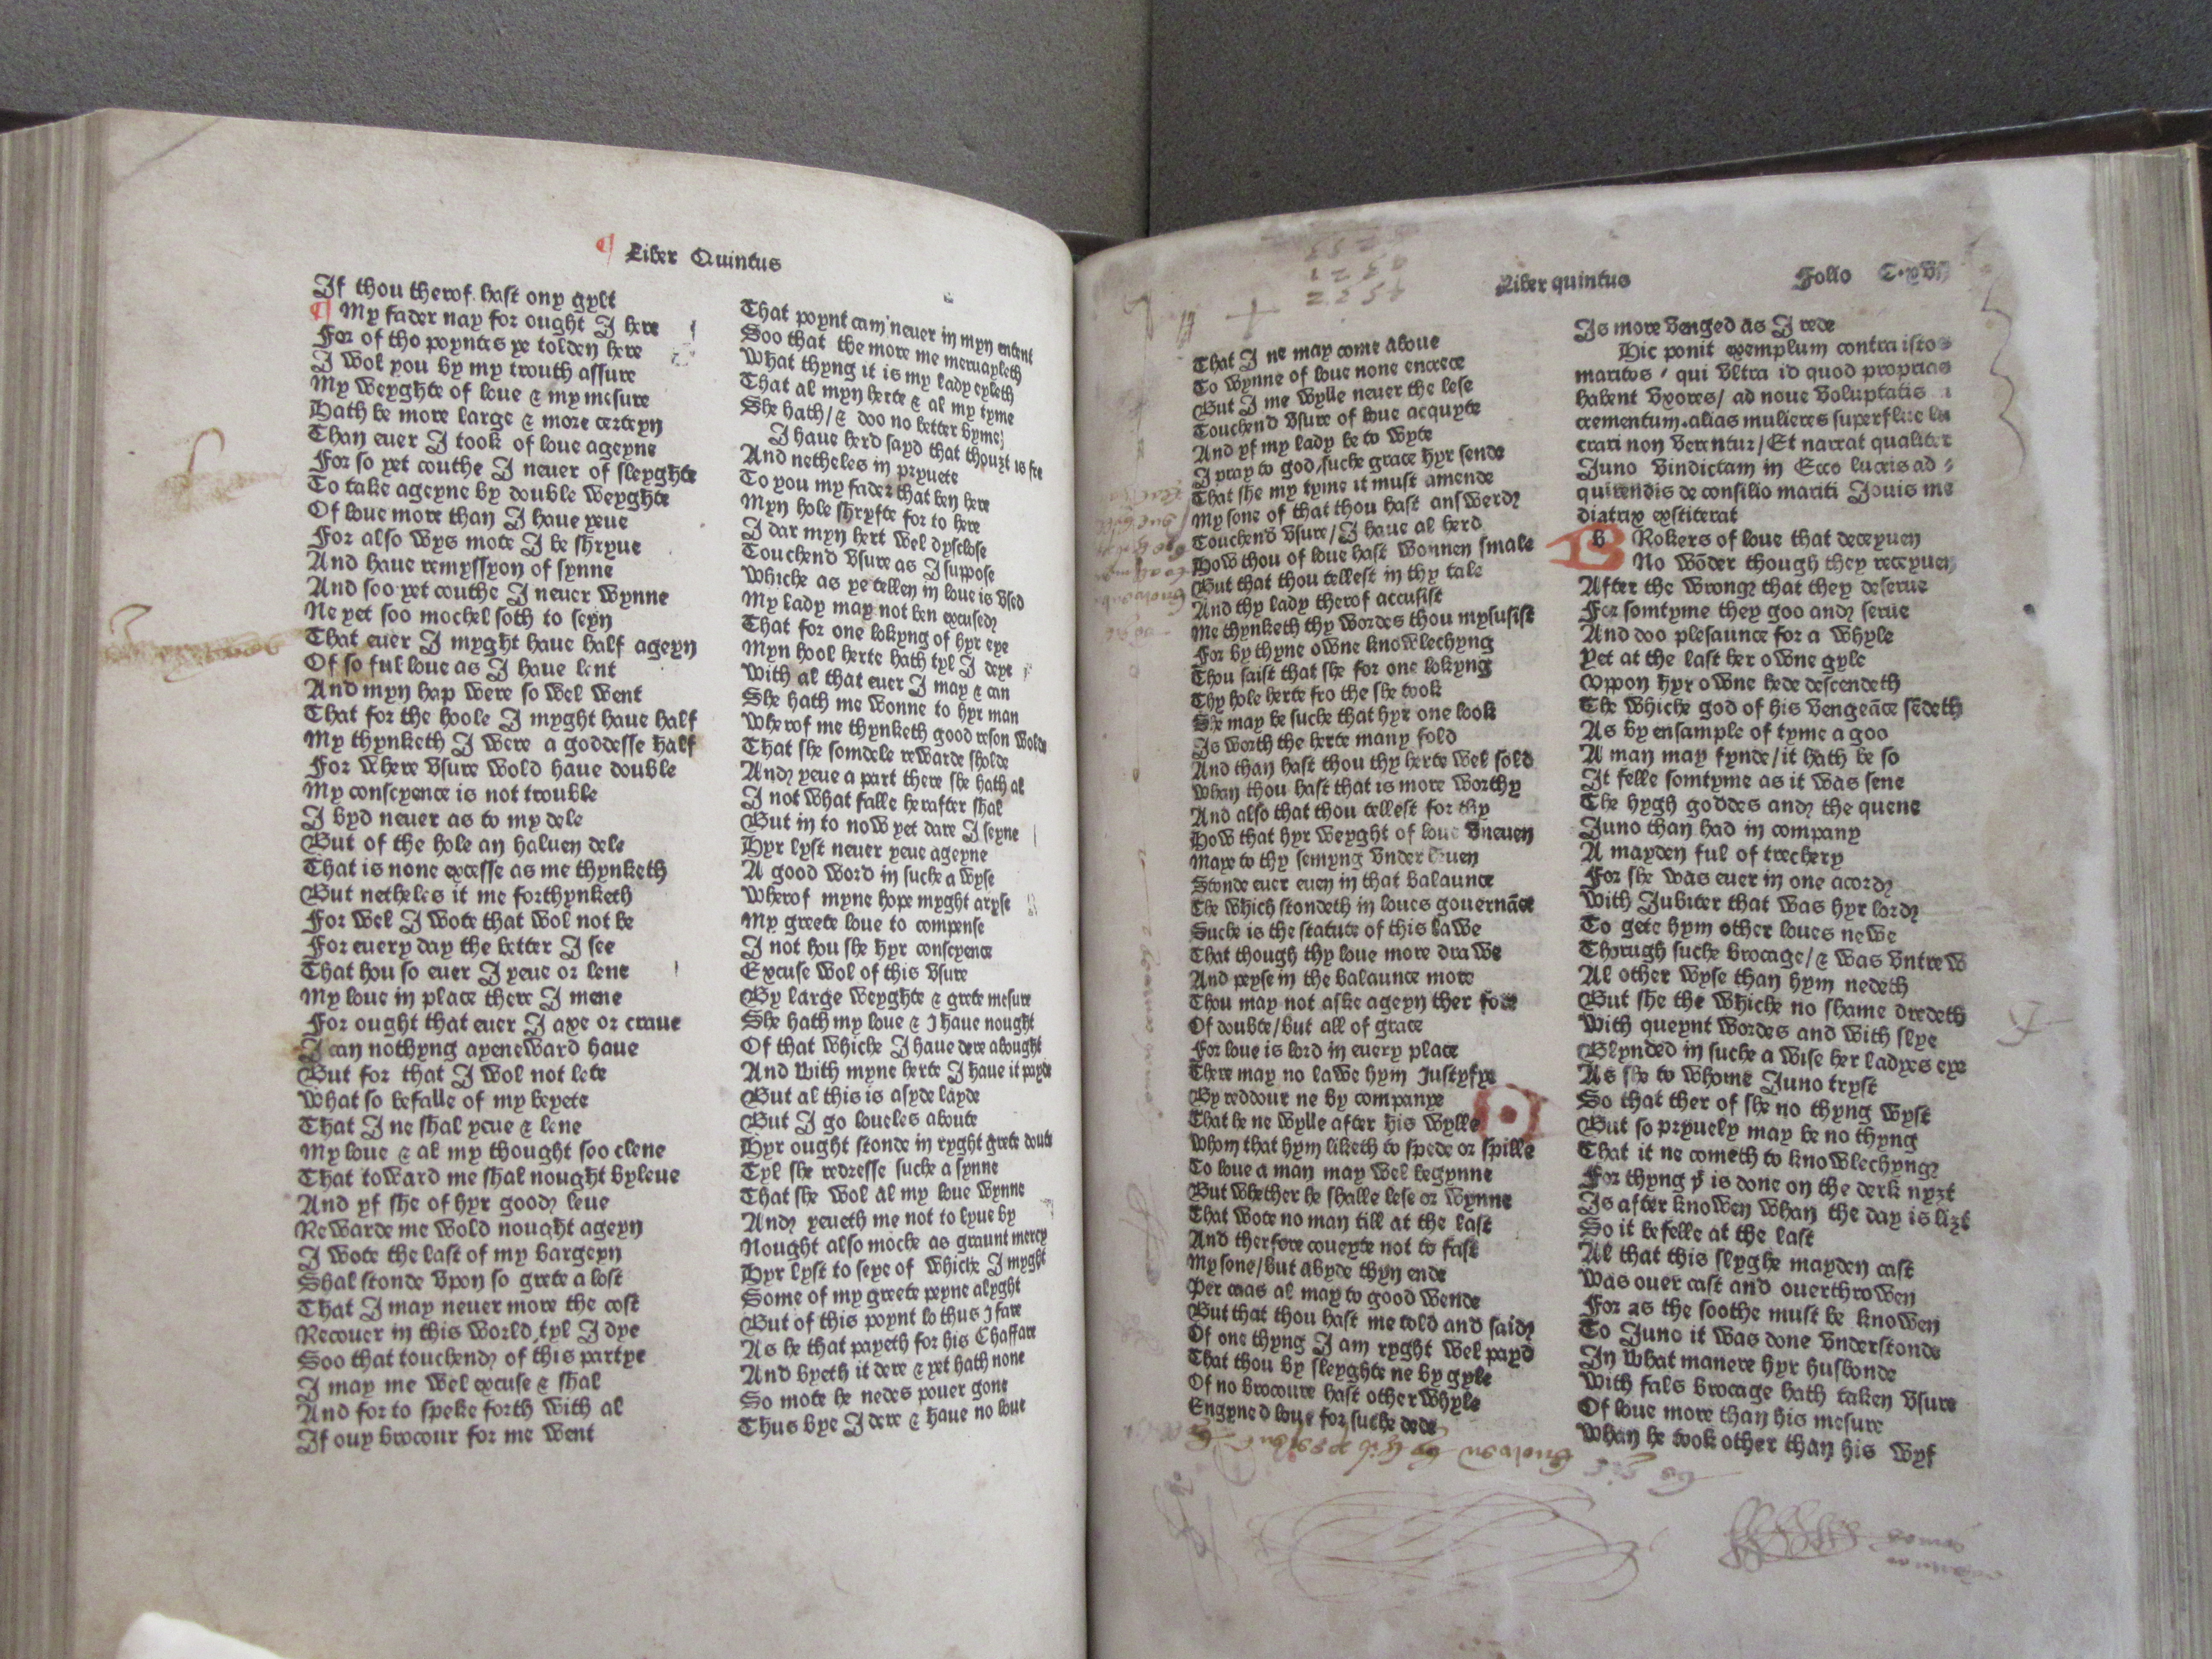 ¶ Liber Quintus
If thou therof hast ony gylt
¶ My fader nay for ought I here
For of tho poyntes ye tolden here
I wol you by my trouth assure
My weyghte of loue & my mesure
Hath be more large & more certeyn
Than euer I took of loue ageyne
For so yet couthe I neuer of sleyghte
To take ageyne by double weyghte
Of loue more than I haue yeue
For also wys mote I be shryue
And haue remyssyon of synne
And soo yet couthe I neuer wynne
Ne yet soo mochel soth to seyn
That euer I myght haue half ageyn
Of so ful loue as I haue lent
And myn hap were so wel went
That for the hoole I myght haue half
My thynketh I were a goddesse half
For where vsure wold haue double
My conscyence is not trouble
I byd neuer as to my dele
But of the hole an haluen dele
That is none excesse as me thynketh
But netheles it me forthynketh
For wel I wote that wol not be
For euery day the better I see
That hou so euer I yeue or lene
My loue in place there I mene
For ought that euer I axe or craue
I can nothyng ayeneward haue
But for that I wol not lete
What so befalle of my beyete
That I ne shal yeue & lene
My loue & al my thought soo clene
That toward me shal nought byleue
And yf she of hyr good leue
Rewarde me wold nought ageyn
I wote the last of my bargeyn
Shal stonde vpon so grete a lost
That I may neuer more the cost
Recouer in this world tyl I dye
Soo that touchend of this partye
I may me wel excuse & shal
And for to speke forth with al
If ouy brocour for me went
That poynt cam neuer in myn entent
Soo that the more me meruayleth
What thyng it is my lady eyleth
That al myn herte & al my tyme
She hath/& doo no better byme
I haue herd sayd that thouzt is fre
And netheles in pryuete
To you my fader that ben here
Myn hole shryfte for to here
I dar myn hert wel dysclose
Touchend vsure as I suppose
Whiche as ye tellen in loue is vsed
My lady may not ben excused
That for one lokyng of hyr eye
Myn hool herte hath tyl I deye
With al that euer I may & can
She hath me wonne to hyr man
Wherof me thynketh good reson wolde
That she somdele rewarde sholde
And yeue a part there she hath al
I not what falle herafter shal
But in to now yet dare I seyne
Hyr lyst neuer yeue ageyne
A good word in suche a wyse
Wherof myne hope myght aryse
My greete loue to compense
I not hou she hyr conscyence
Excuse wol of this vsure
By large weyghte & grete mesure
She hath my loue & I haue nought
Of that whiche I haue dere abought
And with myne herte I haue it payde
But al this is asyde layde
But I go loueles aboute
Hyr ought stonde in ryght grete doute
Tyl she redresse suche a synne
That she wol al my loue wynne
And yeueth me not to lyue by
Nought also moche as graunt mercy
Hyr lyst to seye of whiche I myght
Some of my greete peyne alyght
But of this poynt lo thus I fare
As he that payeth for his Chaffare
And byeth it dere & yet hath none
So mote he nedes pouer gone
Thus bye I dere & haue no loue
Liber quintus
Folio C.xvij
That I ne may come aboue
To wynne of loue none encrece
But I me wylle neuer the lese
Touchend vsure of loue acquyte
And yf my lady be to wyte
I pray to god/suche grace hyr sende
That she my tyme it must amende
My sone of that thou hast answerd
Touchend vsure/I haue al herd
How thou of loue hast wonnen smale
But that thou tellest in thy tale
And thy lady therof accusist
Me thynketh thy wordes thou mysusist
For by thyne owne knowlechyng
Thou saist that she for one lokyng
Thy hole herte fro the she took
She may be suche that hyr one look
Is worth the herte many fold
And than hast thou thy herte wel sold
Whan thou hast that is more worthy
And also that thou tellest for thy
How that hyr weyght of loue vneuen
Maye to thy semyng vnder
Stonde euer euen in that balaunce
The which stondeth in loues gouernāce
Suche is the statute of his lawe
That though thy loue more drawe
And peyse in the balaunce more
Thou may not aske ageyn ther fore
Of doubte/but all of grace
For loue is lord in euery place
There may no lawe hym Justyfye
By reddour ne by companye
That he ne wylle after his wylle
Whom that hym liketh to spede or spille
To loue a man may wel begynne
But whether he shalle lese or wynne
That wote no man till at the last
And therfore coueyte not to fast
My sone/but abyde thyn ende
Per caas al may to good wende
But that thou hast me told and said
Of one thyng I am ryght wel payd
That thou by sleyghte ne by gyle
Of no brocoure hast other whyle
Engyned loue for suche dede
Is more venged as I rede
Hic ponit exemplum contra istos
maritos / qui vltra id quod proprias
habent vxores/ ad noue voluptatis
crementum.alias mulieres superflue lu
crari non verentur/Et narrat qualiter
Juno vindictam in Ecco lucris ad /
quirendis de consilio mariti Jouis me
diatrix exstiterat
BRokers of loue that deceyuen
No wōder though they receyuen
After the wrong that they deserue
For somtyme they goo and serue
And doo plesaunce for a whyle
Yet at the last her owne gyle
Vppon hyr owne hede descendeth
The whiche god of his vengeāce sēdeth
As by ensample of tyme agoo
A man may fynde/it hath be so
It felle somtyme as it was sene
The hygh goddes and the quene
Juno than had in company
A mayden ful of trechery
For she was euer in one acord
With Jubiter that was hyr lord
To gete hym other loues newe
Thorugh suche brocage/& was vntrew
Al other wyse than hym nedeth
But she the whiche no shame dredeth
With queynt wordes and with slye
Blynded in suche a wise her ladyes eye
As she to whome Juno tryst
So that ther of she no thyng wyst
But so pryuely may be no thyng
That it ne cometh to knowlechyng
For thyng yt is done on the derk nyzt
Is after knowen whan the day is lizt
So it befelle at the last
Al that this slyghe mayden cast
Was ouer cast and ouerthrowen
For as the soothe must be knowen
To Juno it was done vnderstonde
In what manere hyr husbonde
With fals brocage hath taken vsure
Of loue more than his mesure
Whan he took other than his wyf